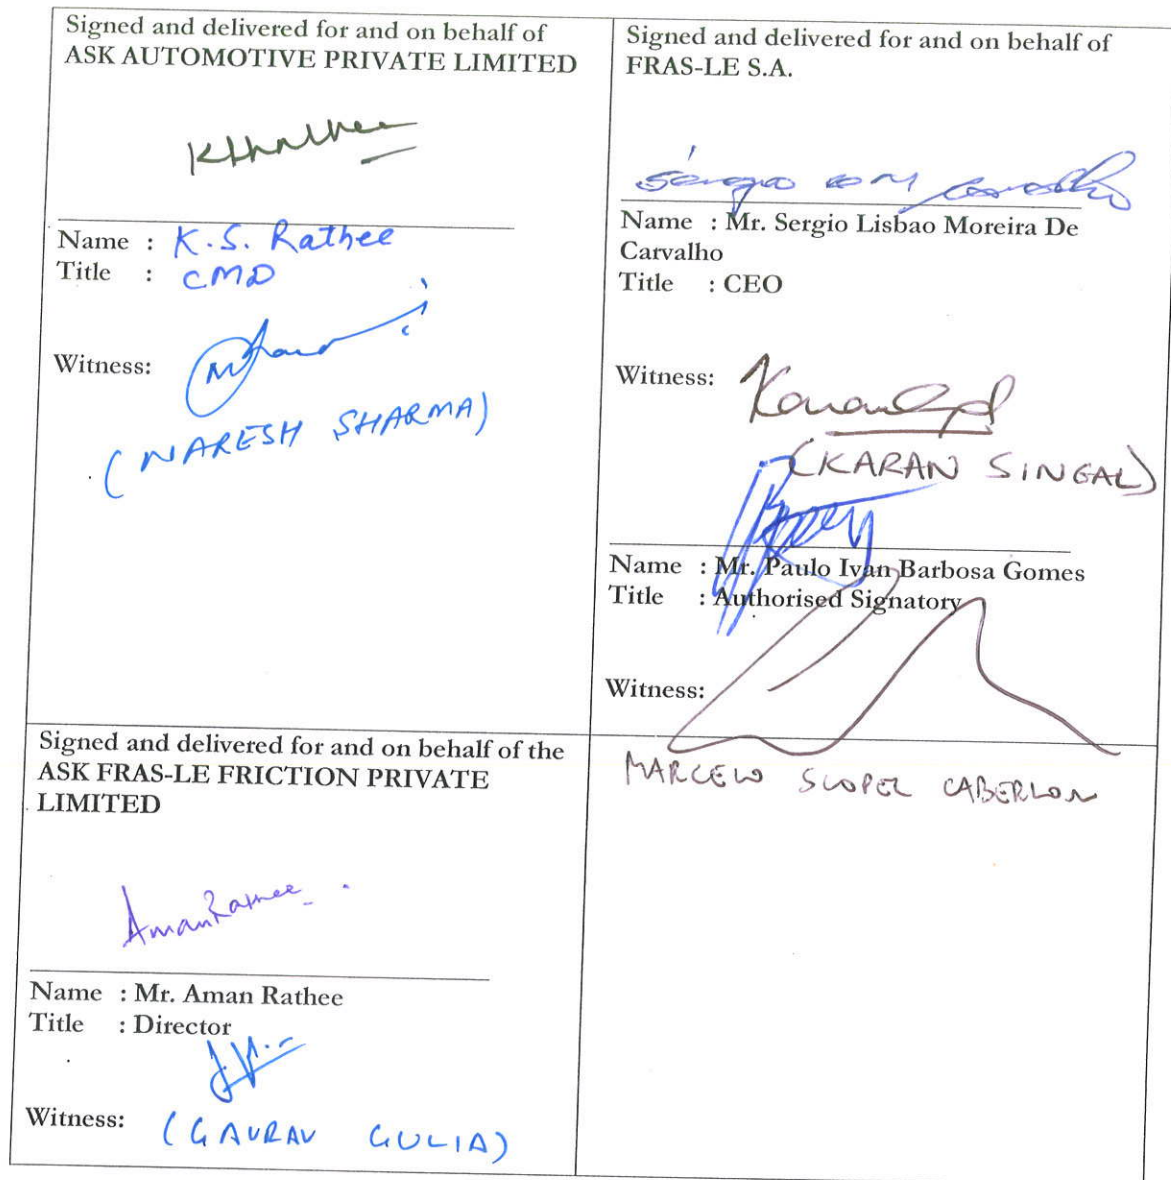 Signed and delivered for and on behalf of
ASK AUTOMOTIVE PRIVATE LIMITED
Name : K.S. Rathee
Title : CMD
Witness:
(NARESH SHARMA)
Signed and delivered for and on behalf of
FRAS-LE S.A.
Name : Mr. Sergio Lisbao Moreira De
Carvalho
Title : CEO
Witness:
(KARAN SINGAL)
Name : Mr. Paulo Ivan Barbosa Gomes
Title : Authorised Signatory
Witness:
MARCELO SCOPEL CABERLON
Signed and delivered for and on behalf of the
ASK FRAS-LE FRICTION PRIVATE
LIMITED
Aman Rathee
Name : Mr. Aman Rathee
Title : Director
Witness: (GAURAV GULIA)